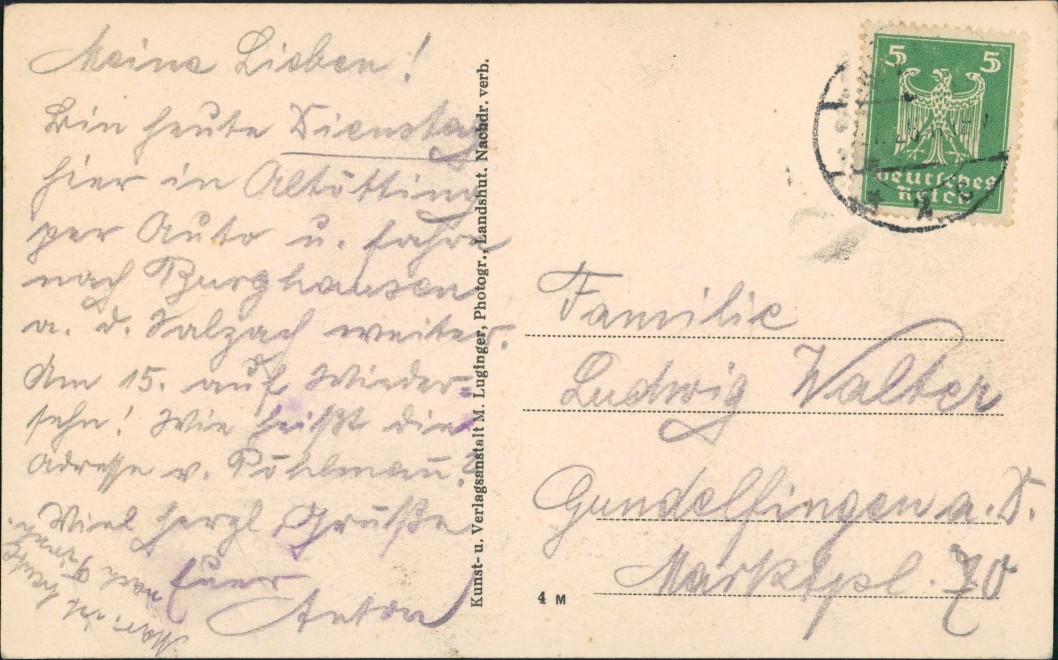 Meine Lieben!
Bin heute Dienstag
hier in Altötting
per Auto u. fahre
nach Burghausen
a. d. Salzach weiter.
Am 15. auf Wieder-
sehn! Wie heißt die
Adresse v. Pöhlmann?
Viel herzl Grüße
Euer
Anton
Kunst- u. Verlagsanstalt M. Luginger, Photogr., Landshut. Nachdr. verb.
4 M
5 5
Deutsches
Reich
Familie
Ludwig Walter
Gundelfingen a. D.
Marktpl. 70